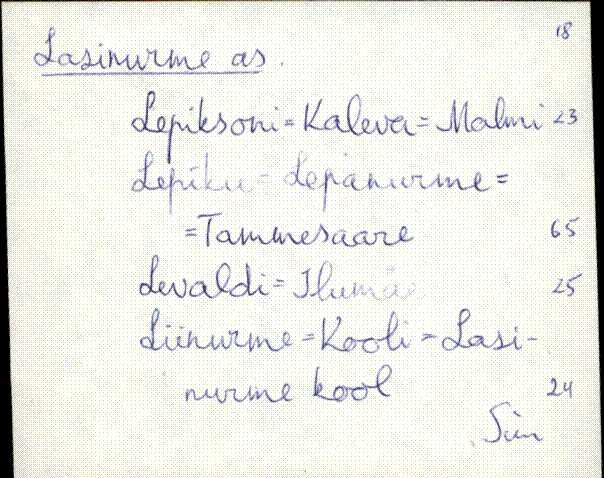 18
Lasinurme as.
Lepiksoni = Kaleva = Malmi 23
Lepiku = Lepanurme =
= Tammesaare 65
Levaldi = Ilumäe 25
Liinurme = Kooli = Lasi-
nurme kool 24
Sim